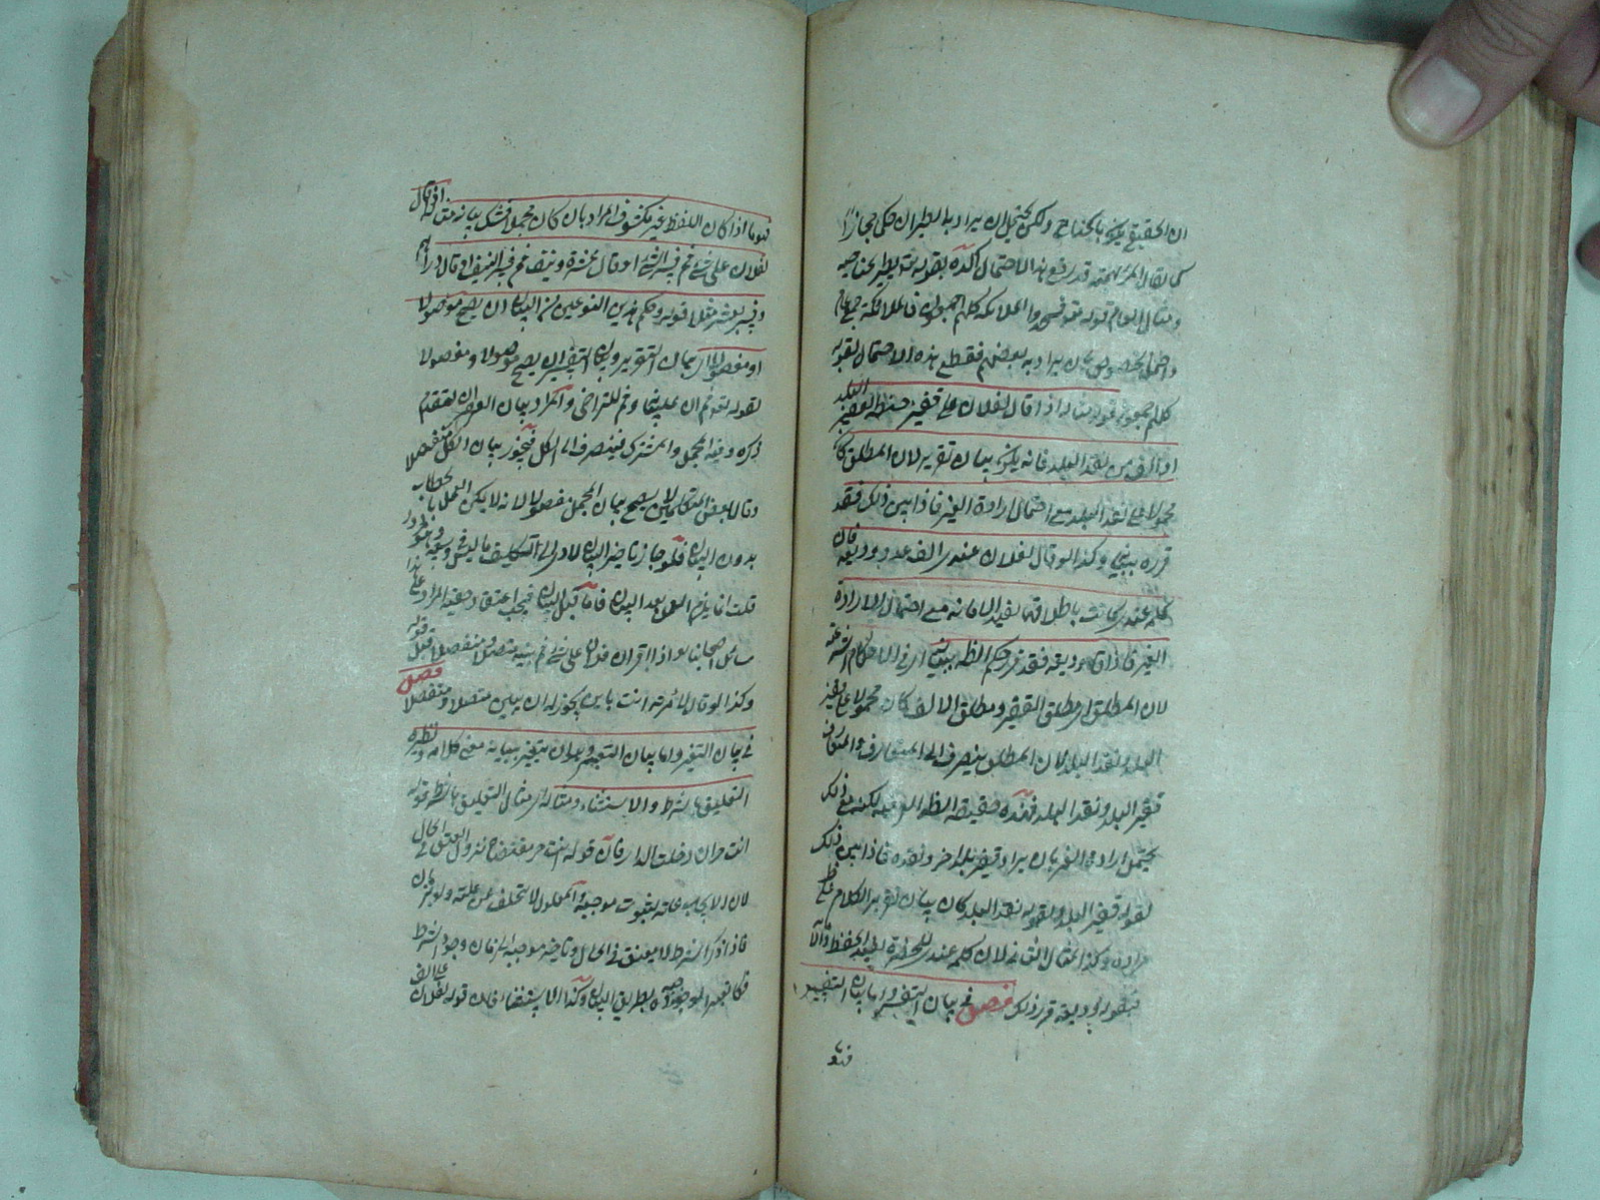 ان الحقيقي يكون بالجناح ولكن يحتمل ان يراد بالطيران حكى مجازا
كما يقال المرء بهمته قد رفع هذا الاحتمال اكده بقوله يطير بجناحيه
ومثال العام قوله فسجد الملائكة كلهم اجمعون فالملائكة جمع عام
واحتمل الخصوص بان يراد به بعضهم فقطع هذا الاحتمال بقوله
كلهم اجمعون مثاله اذا قال لفلان علي قفيز حنطة بقفيز البلد
او الف من نقد البلد فانه يكون بيان تقرير لان المطلق كان
محمولا على نقد البلد مع احتمال ارادة الغير فاذا بين ذلك فقد
قرره ببيانه وكذا لو قال لفلان عندي الف عدد وديعة فان
كلمة عندي كانت باطلاقها تفيد الامانة مع احتمال الارادة
الغير فاذا قال وديعة فقد قرر حكم الظاهر ببيانه
لان المطلق مطلق القفيز ومطلق الالف كان محمولا على قفيز
البلد ونقد البلد لان المطلق ينصرف الى المتعارف والمتعارف
قفيز البلد ونقد البلد حقيقة لكنه مع ذلك
يحتمل ارادة الغير بان يراد قفيز بلد اخر ونقده فاذا بين ذلك
بقوله قفيز البلد وبقوله نقد البلد كان بيان تقرير الكلام
مراده وكذا المثال الثاني لان كلمة عندي للحضرة الحفظ
فبقوله وديعة قرر ذلك فصل في بيان التفسير واما بيان التفسير
فهو
فهو ما اذا كان اللفظ غير مكشوف المراد بان كان مجملا فكشف بيانه مثاله اذا قال
لفلان علي شيء ثم فسر الشيء او قال عشرة ونيف ثم فسر النيف او قال دراهم
وفسر بعشرة مثلا قوله وحكم هذين النوعين من البيان ان يصح موصولا
او مفصولا اي بيان التقرير وبيان التفسير ان يصح موصولا ومفصولا
لقوله ثم ان علينا بيانه وثم للتراخي والمراد بيان القران لتقدم
ذكره وفيه المجمل والمشترك فينصرف الى الكل فيجوز بيان الكل منفصلا
وقال بعض المتكلمين لا يصح بيان المجمل مفصولا لانه لا يمكن العمل بالخطاب
بدون البيان فلو جاز تاخير البيان لادى الى التكليف ما ليس في وسعه
قلت انما يلزم العمل بعد البيان فاما قبل البيان فيجب اعتقاد حقية المراد
مسائل اصحابنا لو اذا اقر ان لفلان علي شيء ثم بينه متصلا او منفصلا قبل قوله
وكذا لو قال لامرأته انت باين يجوز له ان يبين متصلا ومنفصلا فصل
في بيان التغيير واما بيان التغيير فهو ان يتغير ببيانه معنى كلامه ونظيره
التعليق بالشرط والاستثناء ومثاله اي مثال التعليق بالشرط قوله
انت حر ان دخلت الدار فان قوله انت حر مقتضاه نزول العتق في الحال
لان الايجاب علة لثبوت موجبه والمعلول لا يتخلف عن علته
فاذا ذكر الشرط لا يعتق في الحال وتاخر موجبه الى زمان وجود الشرط
بطريق البيان وكذا الاستثناء فان قوله لفلان علي الف